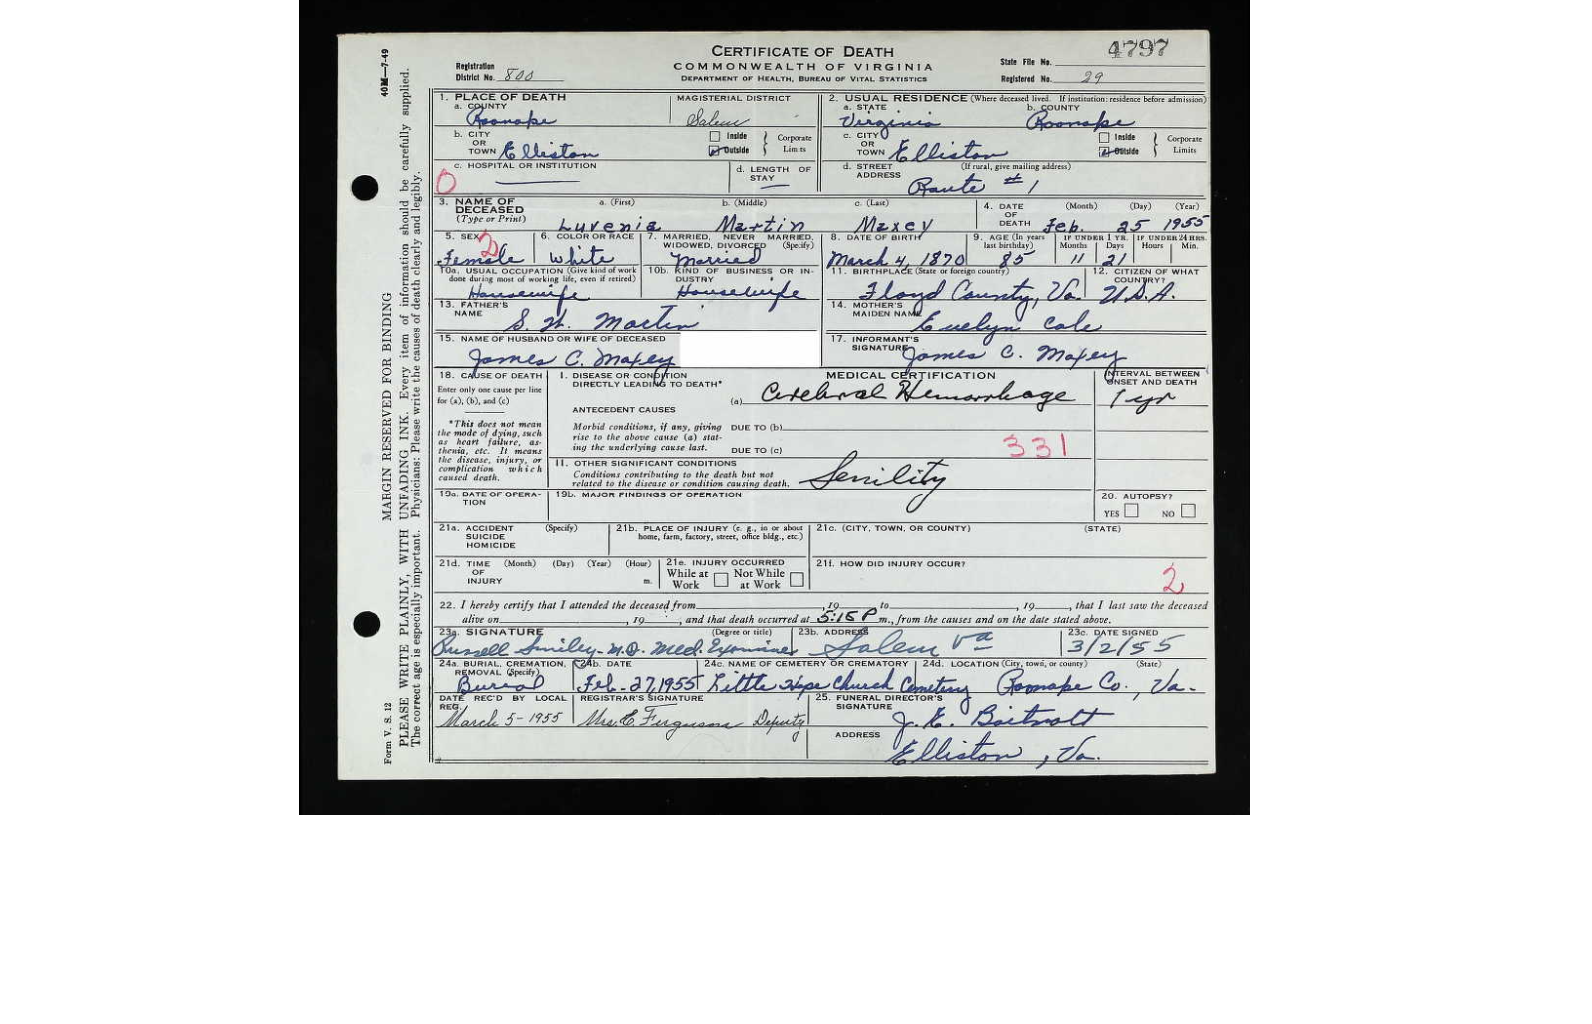 4797
CERTIFICATE OF DEATH
COMMONWEALTH OF VIRGINIA
DEPARTMENT OF HEALTH, BUREAU OF VITAL STATISTICS
Registration District No. 800
State File No.
Registered No. 29
40M—7-49
MARGIN RESERVED FOR BINDING
PLEASE WRITE PLAINLY, WITH UNFADING INK. Every item of information should be carefully supplied.
The correct age is especially important. Physicians: Please write the causes of death clearly and legibly.
Form V. S. 12
1. PLACE OF DEATH
a. COUNTY Roanoke
MAGISTERIAL DISTRICT Salem
b. CITY OR TOWN Elliston
Inside Outside Corporate Limits
c. HOSPITAL OR INSTITUTION
d. LENGTH OF STAY
0
2. USUAL RESIDENCE (Where deceased lived. If institution: residence before admission)
a. STATE Virginia
b. COUNTY Roanoke
c. CITY OR TOWN Elliston
Inside Outside Corporate Limits
d. STREET ADDRESS (If rural, give mailing address)
Route #1
3. NAME OF DECEASED (Type or Print)
a. (First) b. (Middle) c. (Last)
Luvenia Martin Maxey
4. DATE OF DEATH (Month) (Day) (Year)
Feb. 25 1955
5. SEX Female
2
6. COLOR OR RACE White
7. MARRIED, NEVER MARRIED, WIDOWED, DIVORCED (Specify)
Married
8. DATE OF BIRTH
March 4, 1870
9. AGE (In years last birthday) 85
IF UNDER 1 YR. Months Days
11 21
IF UNDER 24 HRS. Hours Min.
10a. USUAL OCCUPATION (Give kind of work done during most of working life, even if retired)
Housewife
10b. KIND OF BUSINESS OR INDUSTRY
Housewife
11. BIRTHPLACE (State or foreign country)
Floyd County, Va.
12. CITIZEN OF WHAT COUNTRY?
U.S.A.
13. FATHER'S NAME
S. H. Martin
14. MOTHER'S MAIDEN NAME
Evelyn Cole
15. NAME OF HUSBAND OR WIFE OF DECEASED
James C. Maxey
17. INFORMANT'S SIGNATURE
James C. Maxey
18. CAUSE OF DEATH
Enter only one cause per line for (a), (b), and (c)
*This does not mean the mode of dying, such as heart failure, asthenia, etc. It means the disease, injury, or complication which caused death.
MEDICAL CERTIFICATION
I. DISEASE OR CONDITION DIRECTLY LEADING TO DEATH*
(a) Cerebral Hemorrhage
INTERVAL BETWEEN ONSET AND DEATH
1 yr
ANTECEDENT CAUSES
Morbid conditions, if any, giving rise to the above cause (a) stating the underlying cause last.
DUE TO (b)
DUE TO (c)
331
II. OTHER SIGNIFICANT CONDITIONS
Conditions contributing to the death but not related to the disease or condition causing death.
Senility
19a. DATE OF OPERATION
19b. MAJOR FINDINGS OF OPERATION
20. AUTOPSY?
YES NO
21a. ACCIDENT SUICIDE HOMICIDE (Specify)
21b. PLACE OF INJURY (e. g., in or about home, farm, factory, street, office bldg., etc.)
21c. (CITY, TOWN, OR COUNTY) (STATE)
21d. TIME OF INJURY (Month) (Day) (Year) (Hour) m.
21e. INJURY OCCURRED
While at Work Not While at Work
21f. HOW DID INJURY OCCUR?
2
22. I hereby certify that I attended the deceased from , 19 to , 19 , that I last saw the deceased
alive on , 19 , and that death occurred at 5:15 P m., from the causes and on the date stated above.
23a. SIGNATURE (Degree or title)
Russell Smiley - M.D. Med. Examiner
23b. ADDRESS
Salem Va
23c. DATE SIGNED
3/2/55
24a. BURIAL, CREMATION, REMOVAL (Specify)
Burial
24b. DATE
Feb-27, 1955
24c. NAME OF CEMETERY OR CREMATORY
Little Hope Church Cemetery
24d. LOCATION (City, town, or county) (State)
Roanoke Co., Va.
DATE REC'D BY LOCAL REG.
March 5-1955
REGISTRAR'S SIGNATURE
Mrs. E Ferguson Deputy
25. FUNERAL DIRECTOR'S SIGNATURE
J. E. Boitnott
ADDRESS
Elliston, Va.